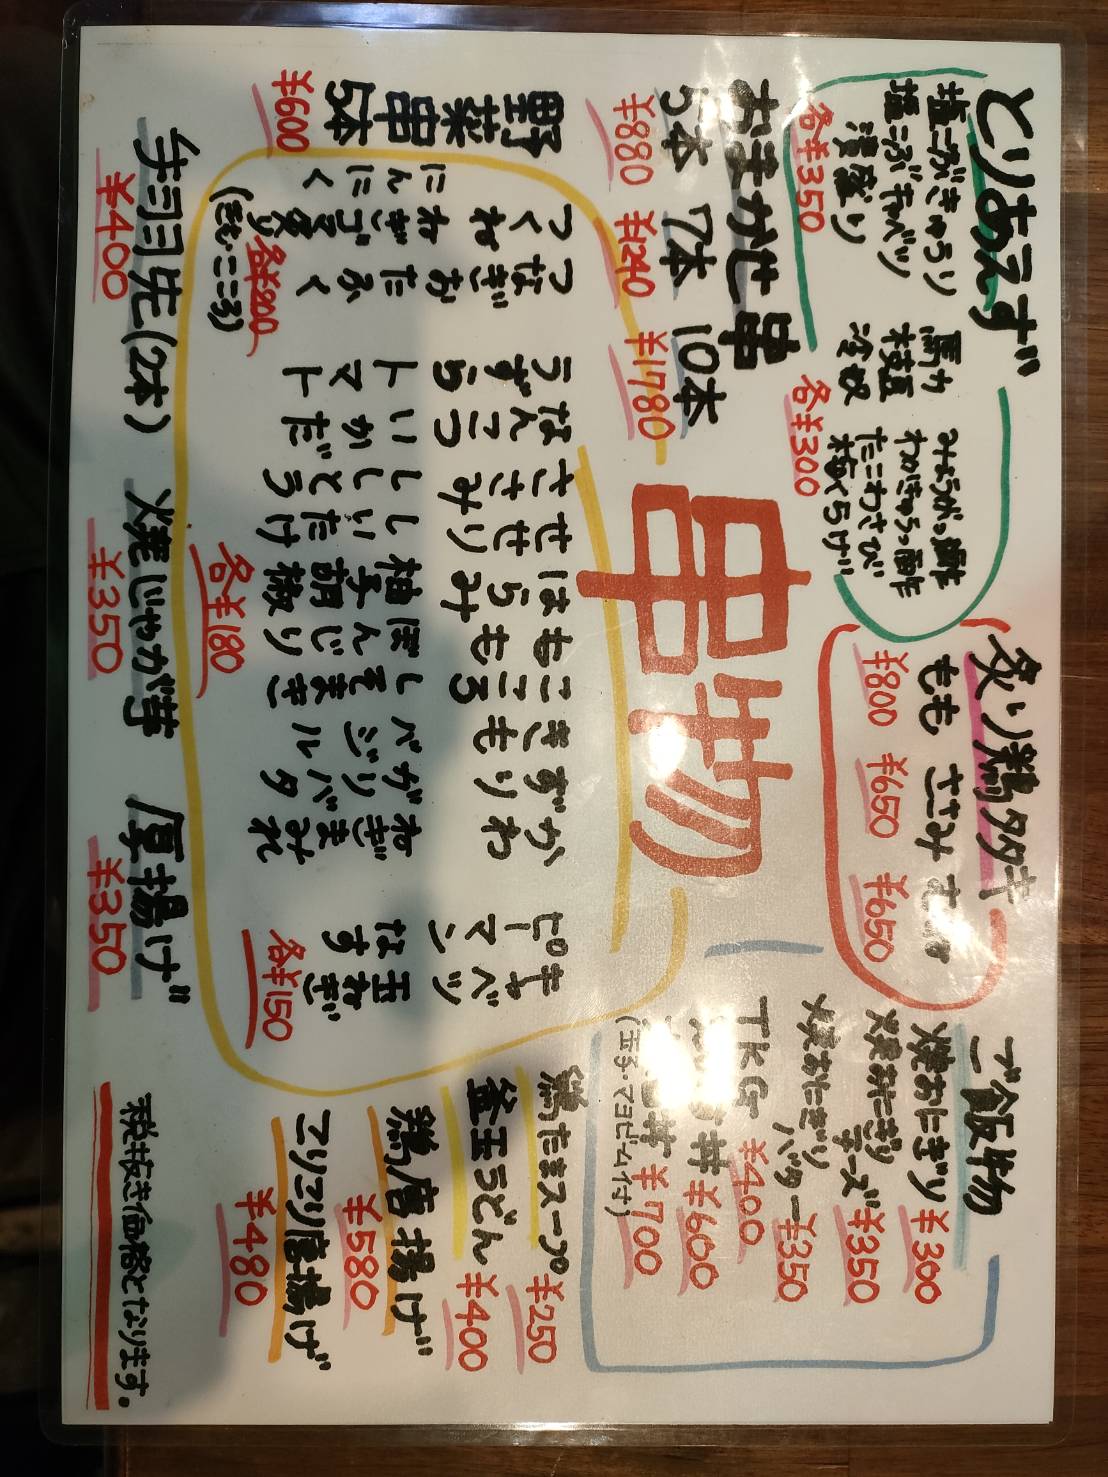 とりあえず
塩こぶきゅうり
塩こぶキャベツ
漬盛り
各¥350
馬カ
枝豆
冷奴
みょうがっ酢
わかきゅうっ酢
たこわさび
梅くらげ
各¥300
炙り鶏タタキ
もも ささみ むね
¥800 ¥650 ¥650
ご飯物
焼おにぎり ¥300
焼おにぎり
チーズ ¥350
焼おにぎり
バター ¥350
TKG ¥400
丼 ¥600
丼 ¥700
(玉子・マヨビーム付)
おまかせ串
5本 7本 10本
¥880 ¥1240 ¥1780
串物
キャベツ 玉ねぎ
ピーマン なす
各¥150
かわ ねぎまみれ
ずり ガリバタ
きも バジル
こころ しそまき
もも ぼんじり
はらみ 柚子胡椒
せせり しいたけ
ささみ ししとう
なんこつ いかだ
うずら トマト
各¥180
つなぎ おたふく
つくね ねぎゴマ炙り
(きも・こころ)
にんにく
各¥200
野菜串5本
¥600
鶏たまスープ ¥250
釜玉うどん ¥400
鶏唐揚げ
¥580
こりこり唐揚げ
¥480
手羽先(2本)
¥400
焼じゃが芋
¥350
厚揚げ
¥350
税抜き価格となります。